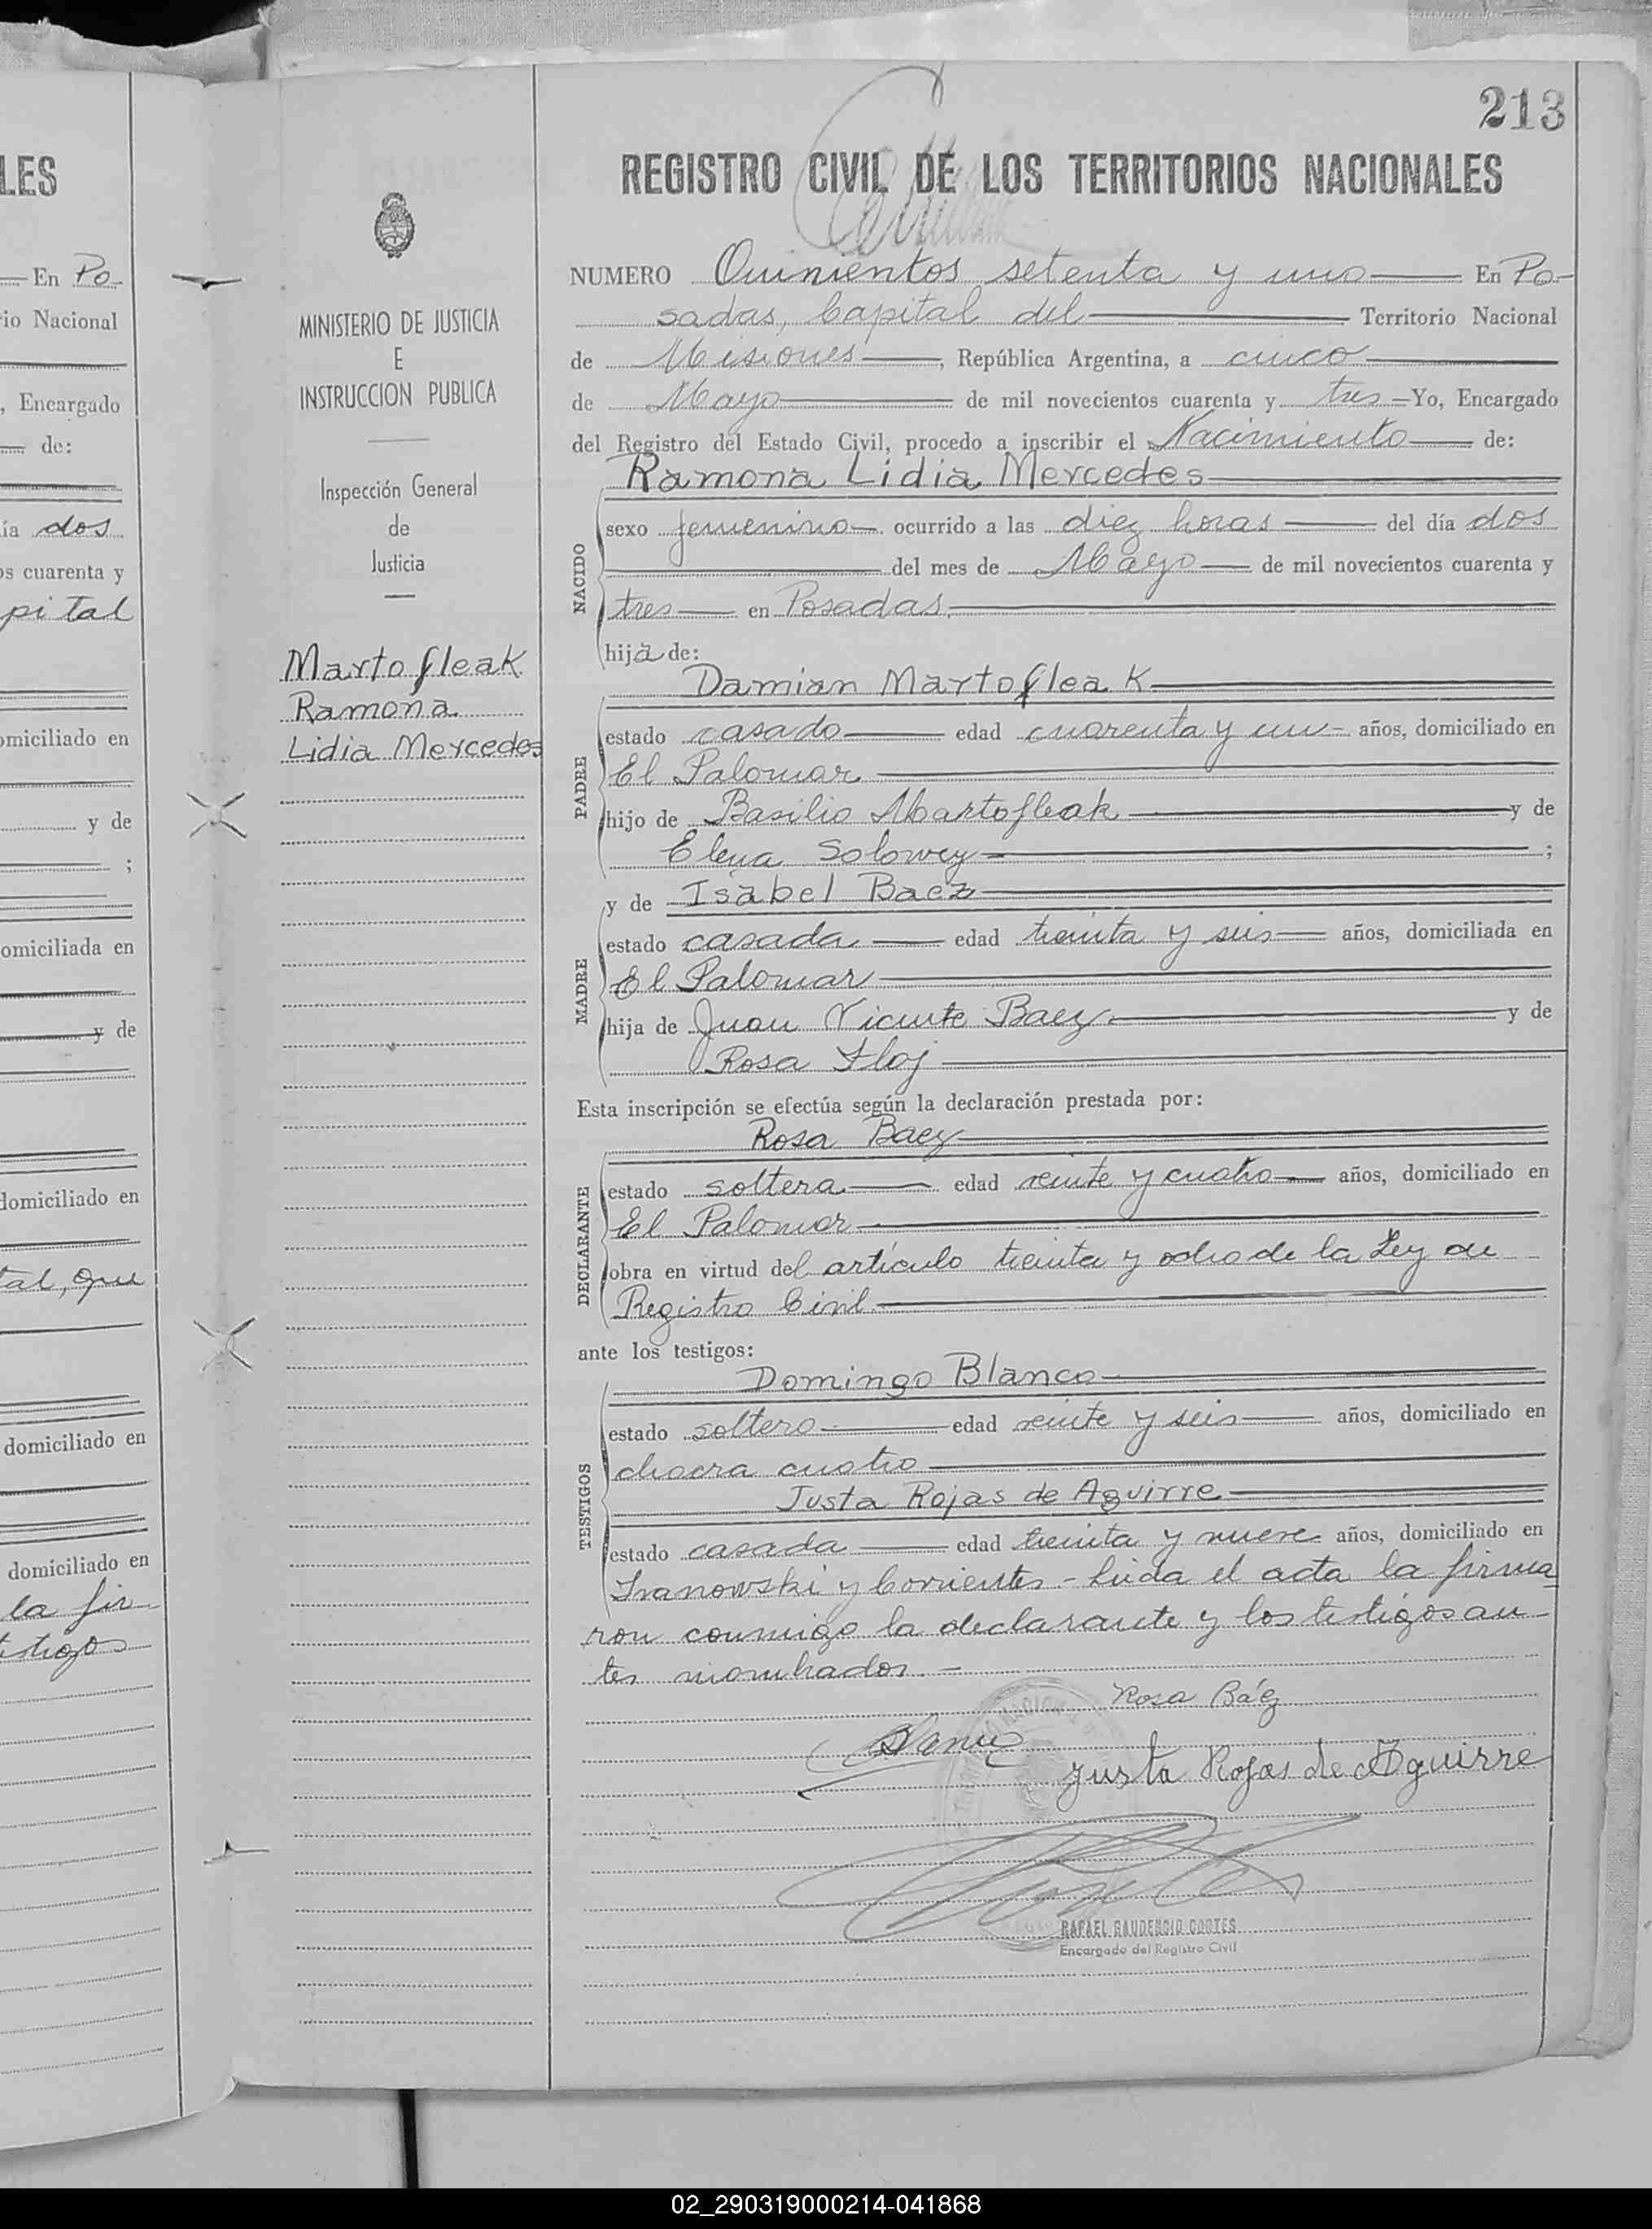 LES
En Po-
rio Nacional
, Encargado
de:
ía dos
os cuarenta y
pital
omiciliado en
y de
;
omiciliada en
y de
domiciliado en
tal, que
domiciliado en
domiciliado en
la fir-
stigos
MINISTERIO DE JUSTICIA
E
INSTRUCCION PUBLICA
Inspección General
de
Justicia
Martofleak
Ramona
Lidia Mercedes
213
REGISTRO CIVIL DE LOS TERRITORIOS NACIONALES
NUMERO Quinientos setenta y uno En Po-
sadas, Capital del Territorio Nacional
de Misiones, República Argentina, a cinco
de Mayo de mil novecientos cuarenta y tres Yo, Encargado
del Registro del Estado Civil, procedo a inscribir el Nacimiento de:
Ramona Lidia Mercedes
NACIDO
sexo femenino ocurrido a las diez horas del día dos
del mes de Mayo de mil novecientos cuarenta y
tres en Posadas
hija de:
Damian Martofleak
PADRE
estado casado edad cuarenta y un años, domiciliado en
El Palomar
hijo de Basilio Martofleak y de
Elena Solowey ;
y de Isabel Baez
MADRE
estado casada edad treinta y seis años, domiciliada en
El Palomar
hija de Juan Vicente Baez y de
Rosa
Esta inscripción se efectúa según la declaración prestada por:
Rosa Baez
DECLARANTE
estado soltera edad veinte y cuatro años, domiciliado en
El Palomar
obra en virtud del artículo treinta y ocho de la Ley de
Registro Civil
ante los testigos:
Domingo Blanco
TESTIGOS
estado soltero edad veinte y seis años, domiciliado en
chacra cuatro
Justa Rojas de Aguirre
estado casada edad treinta y nueve años, domiciliado en
Ivanowski y Corrientes - Leida el acta la firma-
ron conmigo la declarante y los testigos an-
tes nombrados.-
Rosa Báez
Justa Rojas de Aguirre
RAFAEL GAUDENCIO CORTES
Encargado del Registro Civil
02_290319000214-041868